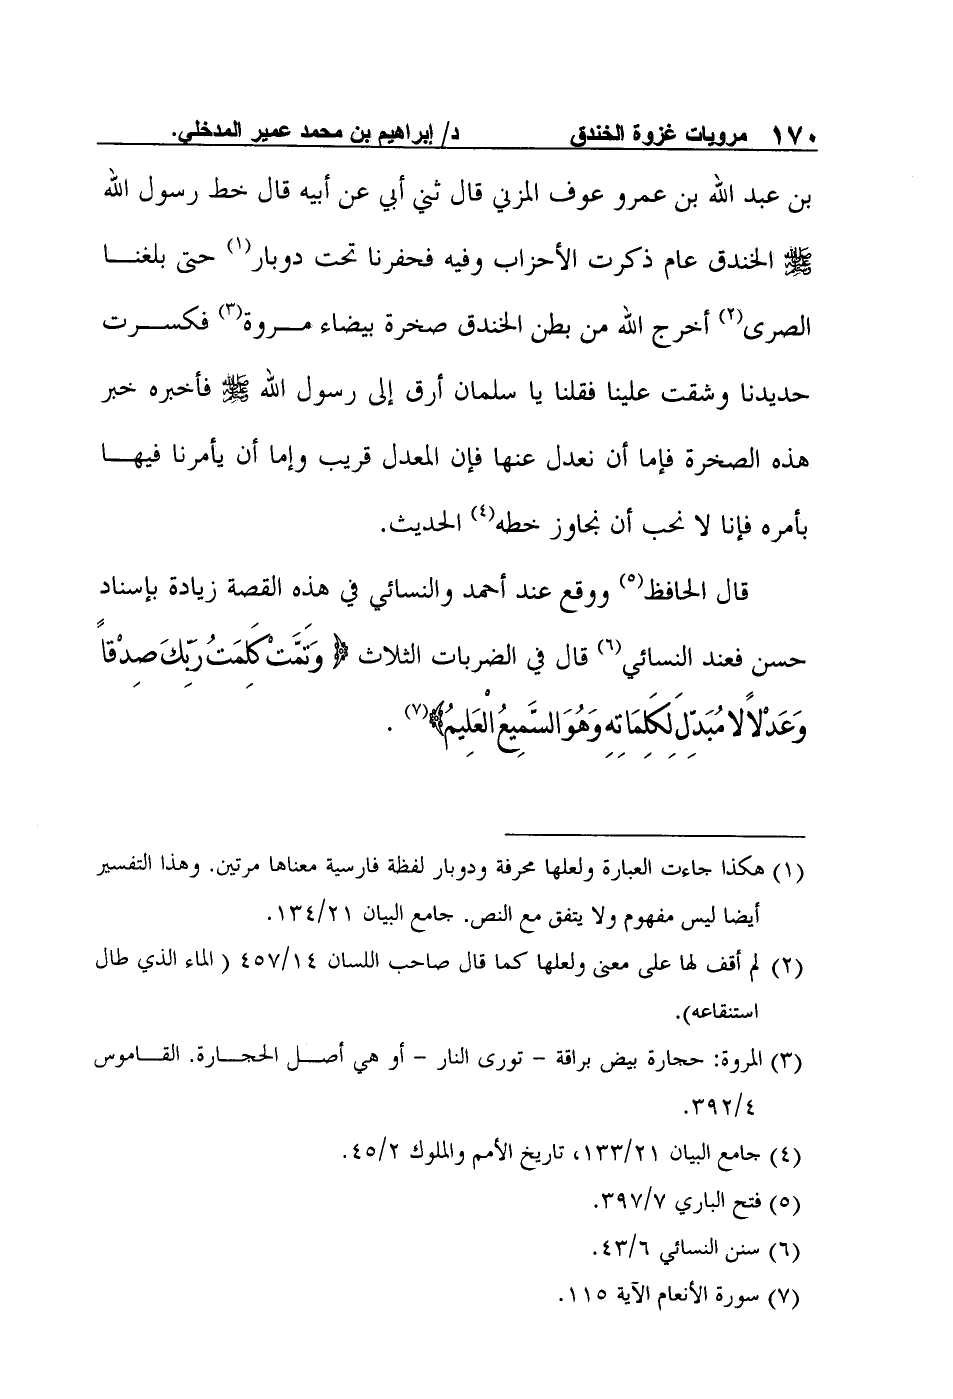 ١٧٠ مرويات غزوة الخندق د/ إبراهيم بن محمد عمير المدخلي.
بن عبد الله بن عمرو عوف المزني قال ثني أبي عن أبيه قال خط رسول الله
ﷺ الخندق عام ذكرت الأحزاب وفيه فحفرنا تحت دوبار(١) حتى بلغنا
الصرى(٢) أخرج الله من بطن الخندق صخرة بيضاء مروة(٣) فكسرت
حديدنا وشقت علينا فقلنا يا سلمان أرق إلى رسول الله ﷺ فأخبره خبر
هذه الصخرة فإما أن نعدل عنها فإن المعدل قريب وإما أن يأمرنا فيها
بأمره فإنا لا نحب أن نجاوز خطه(٤) الحديث.
قال الحافظ(٥) ووقع عند أحمد والنسائي في هذه القصة زيادة بإسناد
حسن فعند النسائي(٦) قال في الضربات الثلاث ﴿ وَتَمَّتْ كَلِمَتُ رَبِّكَ صِدْقاً
وَعَدْلاً لا مُبَدِّلَ لِكَلِمَاتِهِ وَهُوَ السَّمِيعُ الْعَلِيمُ﴾(٧) .
(١) هكذا جاءت العبارة ولعلها محرفة ودوبار لفظة فارسية معناها مرتين. وهذا التفسير
أيضا ليس مفهوم ولا يتفق مع النص. جامع البيان ١٣٤/٢١.
(٢) لم أقف لها على معنى ولعلها كما قال صاحب اللسان ٤٥٧/١٤ ( الماء الذي طال
استنقاعه).
(٣) المروة: حجارة بيض براقة - تورى النار - أو هي أصل الحجارة. القاموس
٣٩٢/٤.
(٤) جامع البيان ١٣٣/٢١، تاريخ الأمم والملوك ٤٥/٢.
(٥) فتح الباري ٣٩٧/٧.
(٦) سنن النسائي ٤٣/٦.
(٧) سورة الأنعام الآية ١١٥.